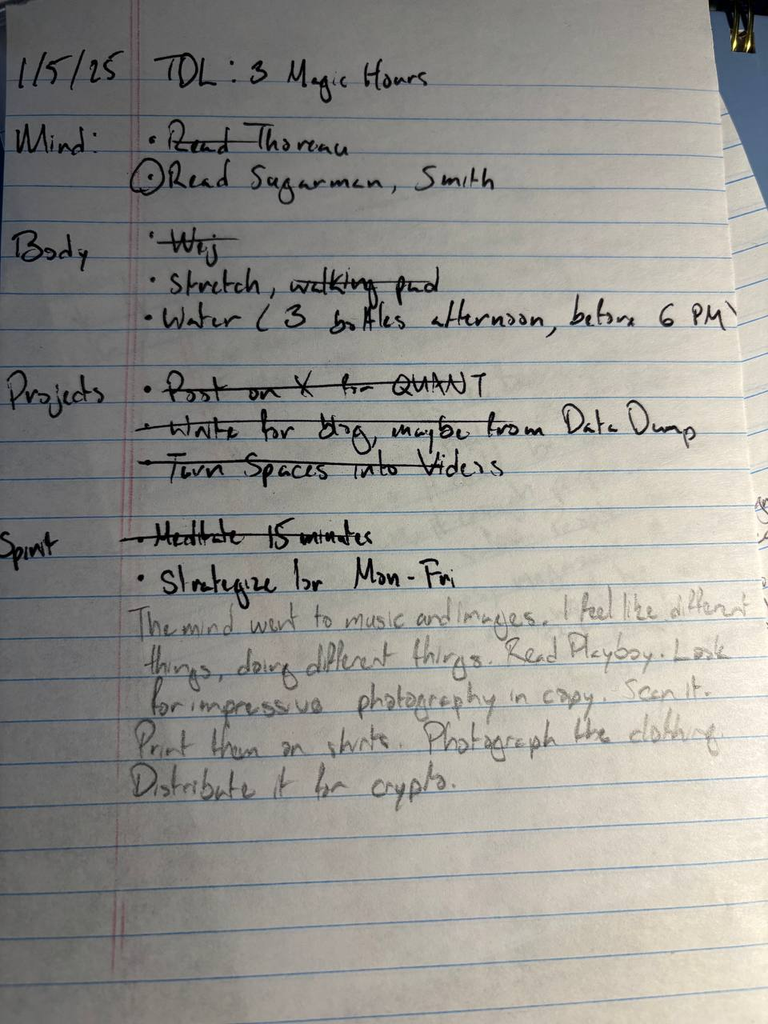 1/5/25 TDL: 3 Magic Hours
Mind: • Read Thoreau
⊙ Read Sugarman, Smith
Body • Wij
• Stretch, walking pad
• Water (3 bottles afternoon, before 6 PM)
Projects • Post on X for QUANT
• Write for blog, maybe from Data Dump
• Turn Spaces into Videos
Spirit • Meditate 15 minutes
• Strategize for Mon-Fri
The mind went to music and images. I feel like different
things, doing different things. Read Playboy. Look
for impressive photography in copy. Scan it.
Print them on shirts. Photograph the clothing.
Distribute it for crypto.